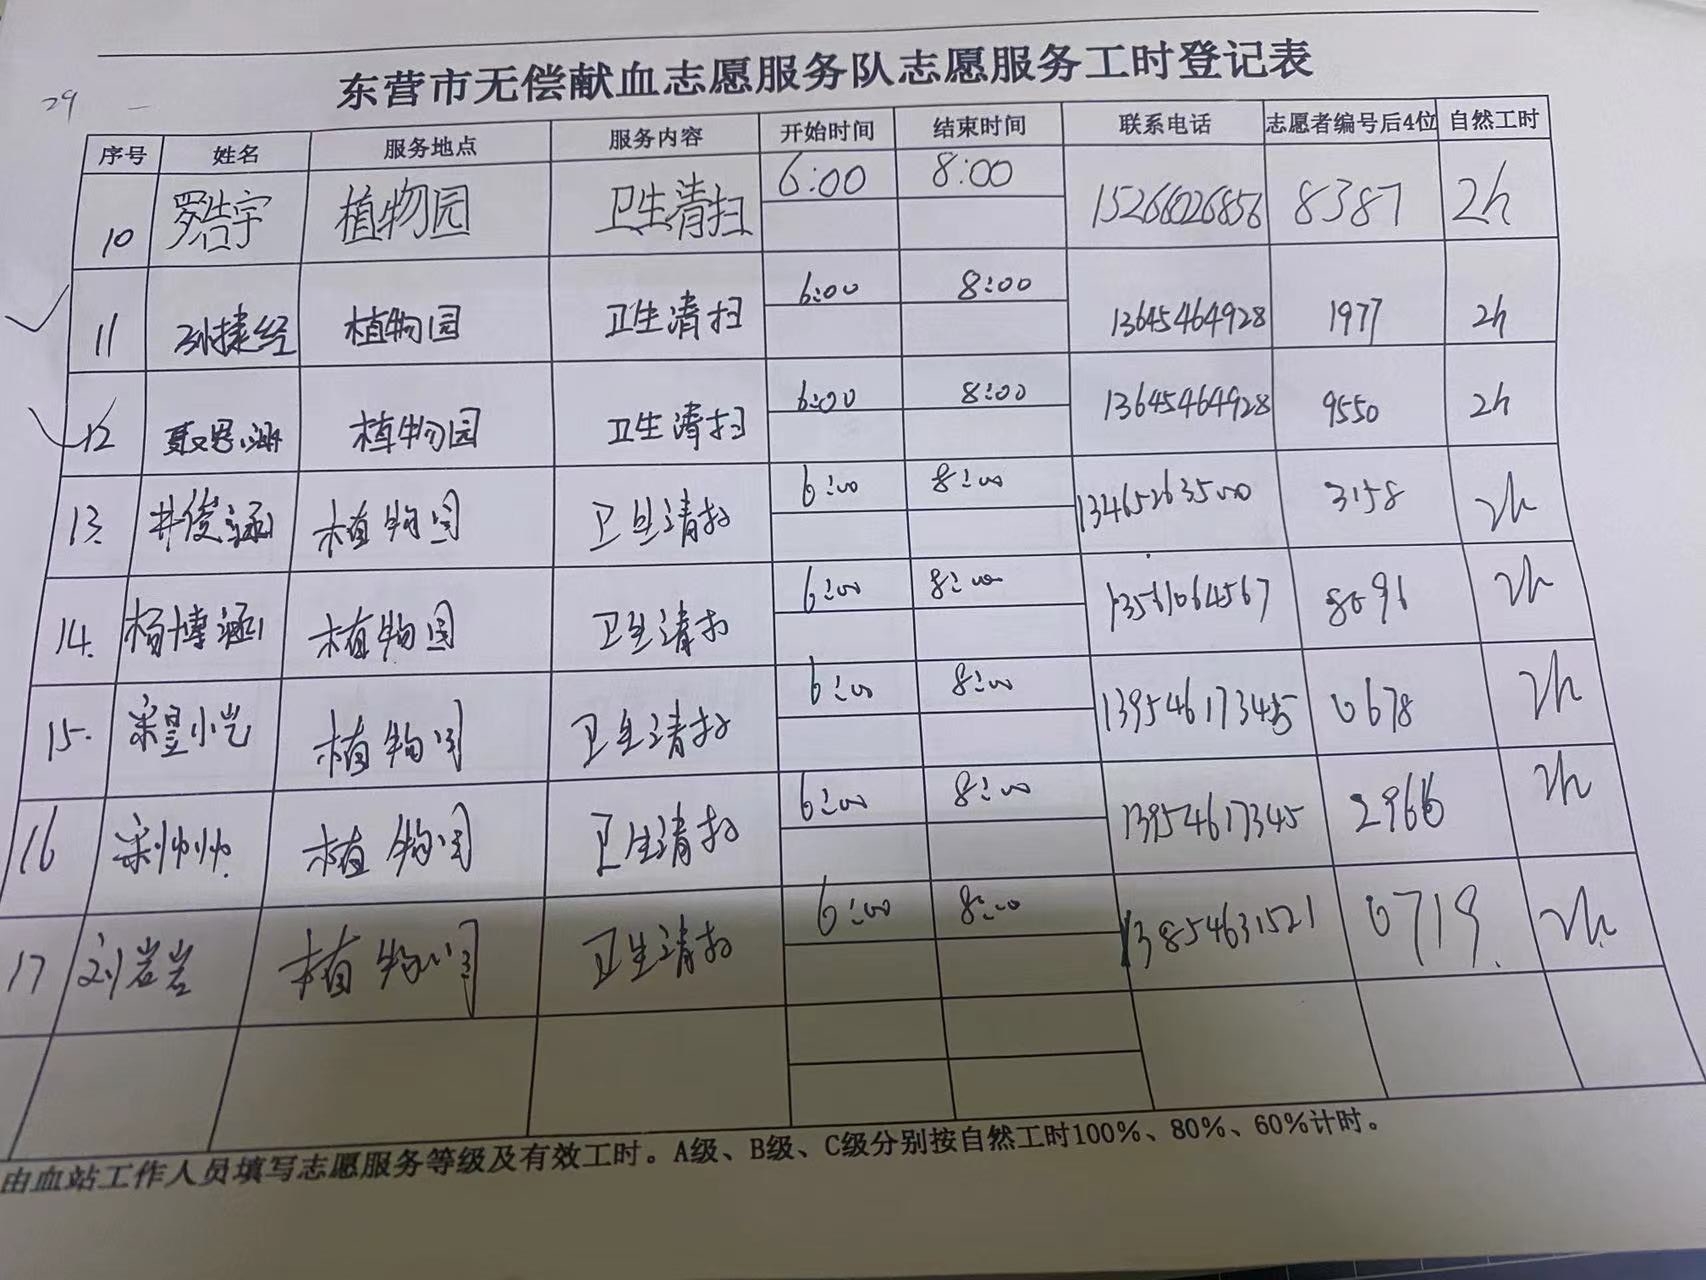 29
东营市无偿献血志愿服务队志愿服务工时登记表
序号 姓名 服务地点 服务内容 开始时间 结束时间 联系电话 志愿者编号后4位 自然工时
10 罗浩宇 植物园 卫生清扫 6:00 8:00 15266026856 8387 2h
11 孙捷经 植物园 卫生清扫 6:00 8:00 13645464928 1977 2h
12 聂思涵 植物园 卫生清扫 6:00 8:00 13645464928 9550 2h
13. 井俊涵 植物园 卫生清扫 6:00 8:00 13465263500 3158 2h
14. 杨博涵 植物园 卫生清扫 6:00 8:00 13561064567 8096 2h
15. 植物园 卫生清扫 6:00 8:00 13954617345 0678 2h
16 宋帅帅 植物园 卫生清扫 6:00 8:00 13954617345 2966 2h
17 刘岩岩 植物园 卫生清扫 6:00 8:00 13854631521 0719. 2h
由血站工作人员填写志愿服务等级及有效工时。A级、B级、C级分别按自然工时100%、80%、60%计时。